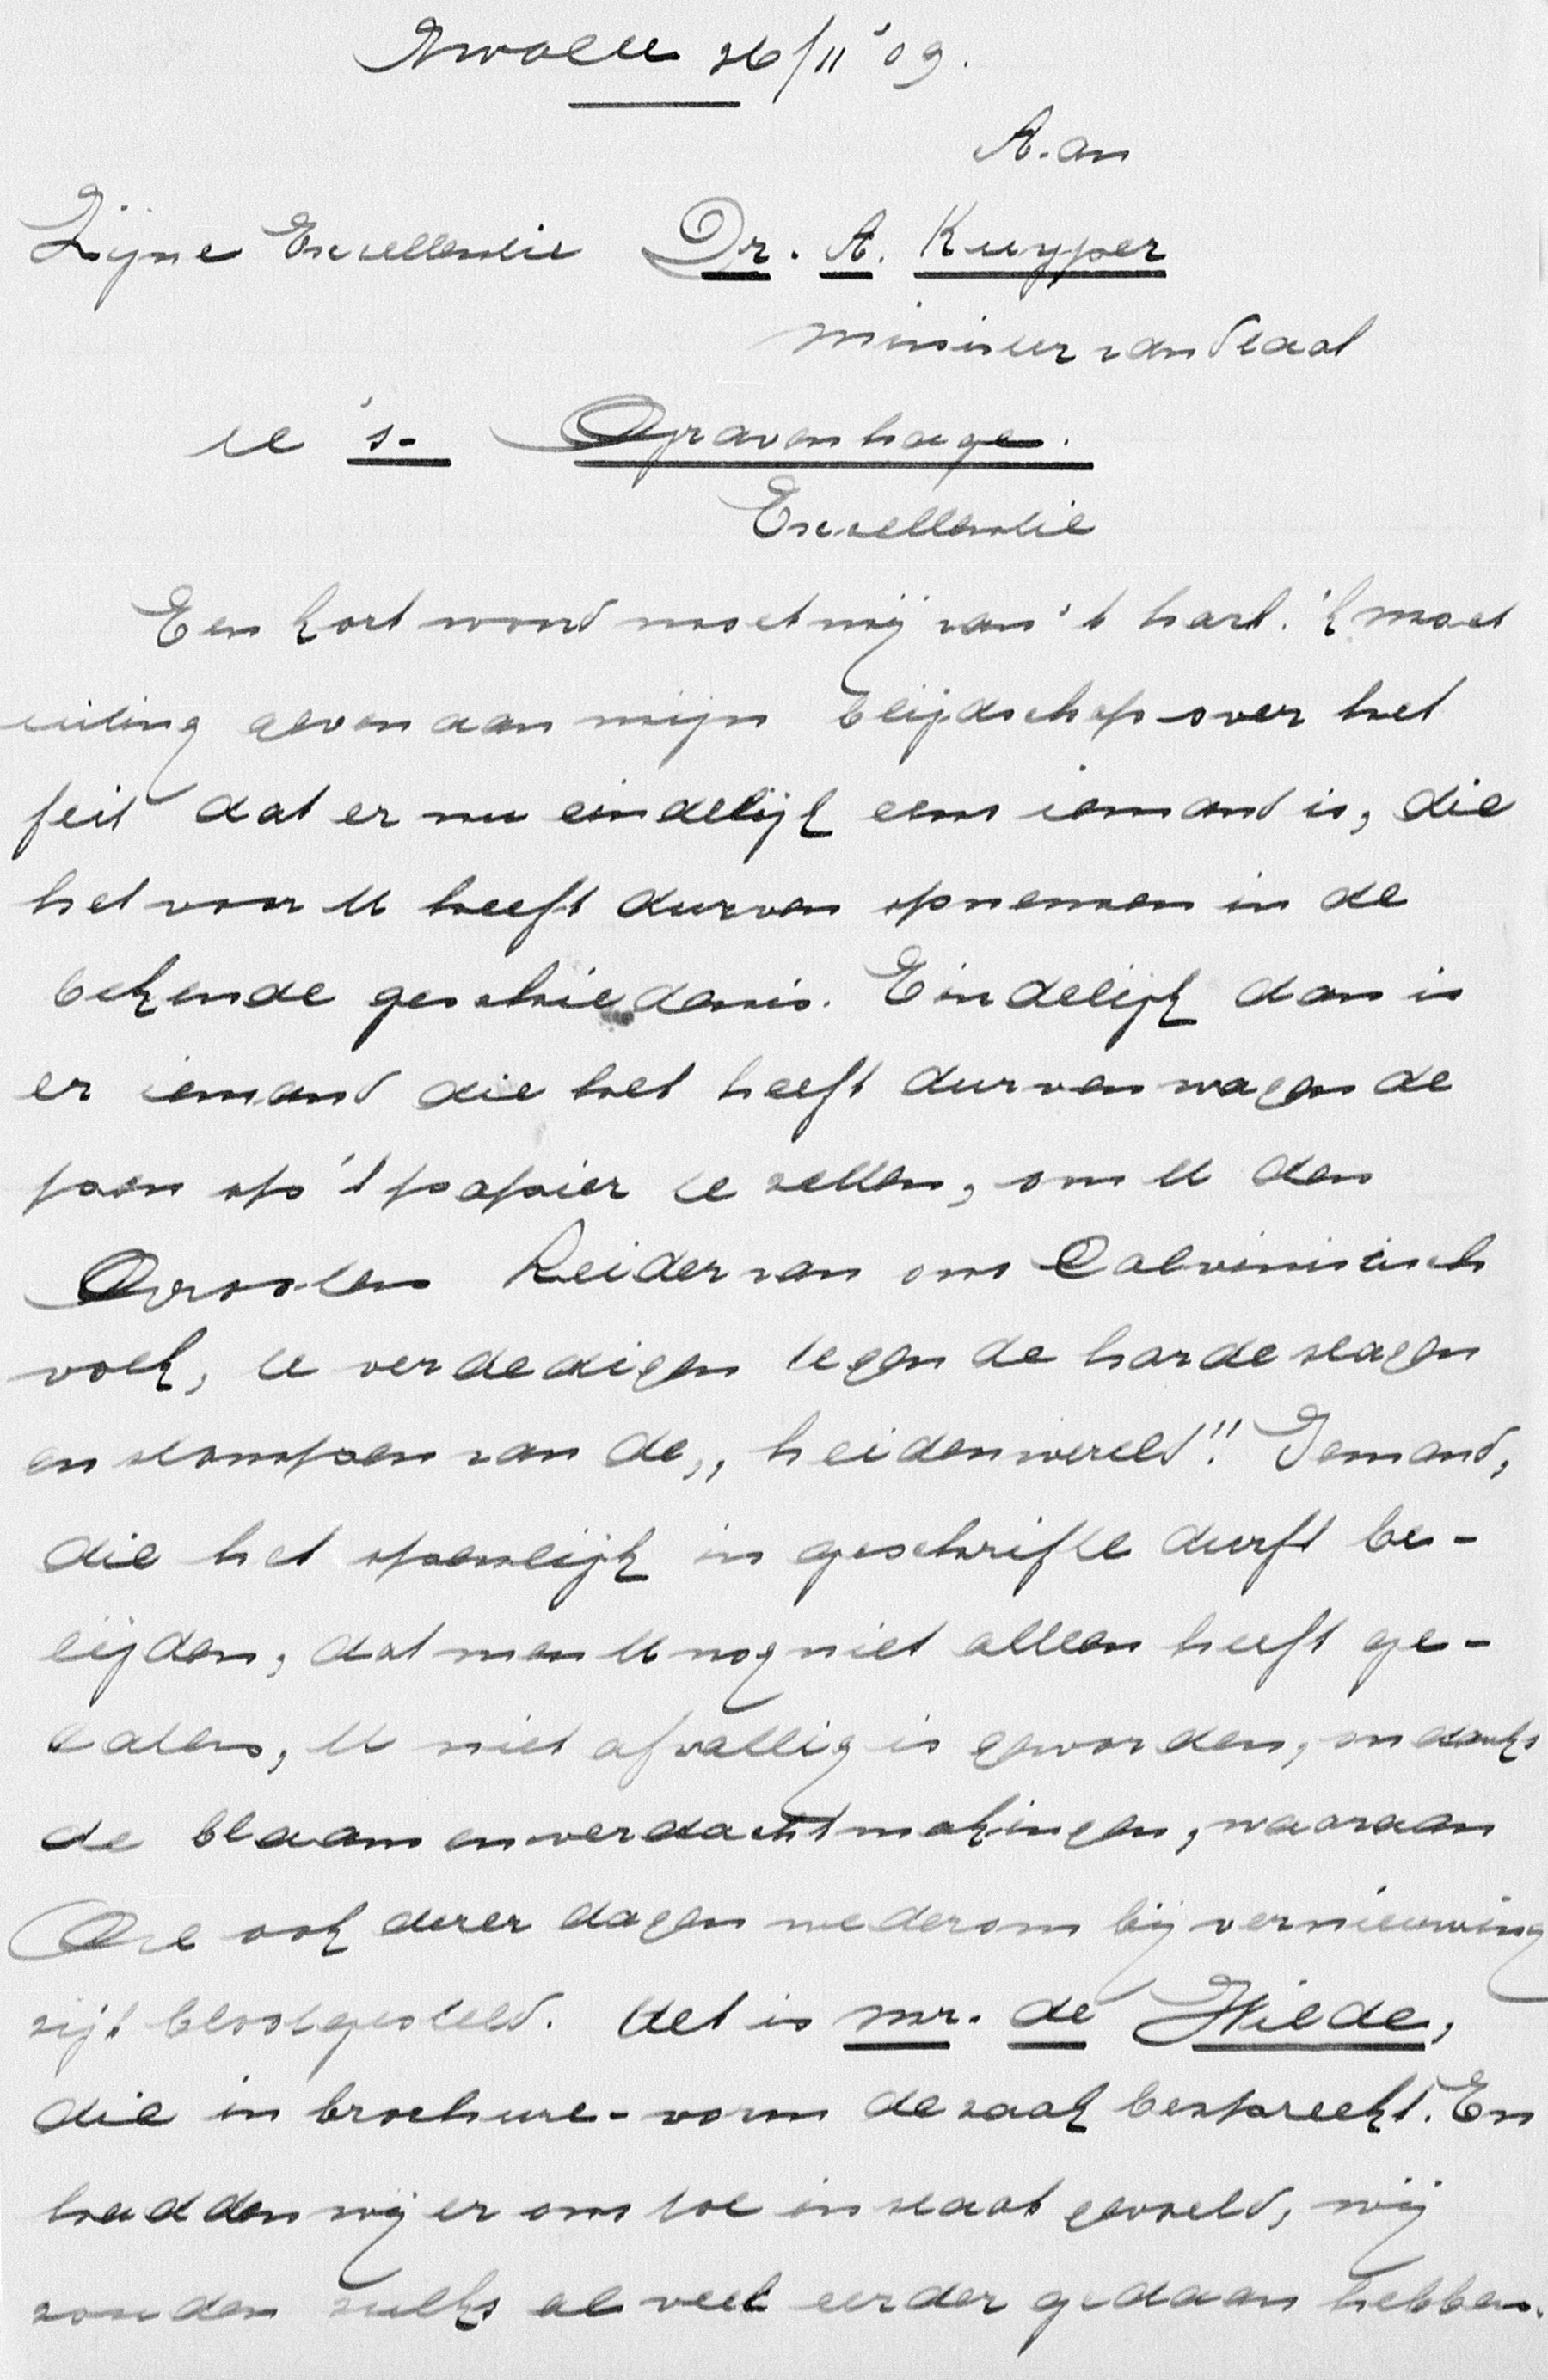 Zwolle 26/11 '09.
Aan
Zijne Excellentie Dr. A. Kuyper
Minister van Staat
te 's- Gravenhage.
Excellentie
Een kort woord moet mij van 't hart. 'k moet
uiting geven aan mijn blijdschap over het
feit dat er nu eindelijk eens iemand is, die
het voor U heeft durven opnemen in de
bekende geschiedenis. Eindelijk dan is
er iemand die het heeft durven wagen de
pen op 't papier te zetten, om U den
Grooten Leider van ons Calvinistisch
volk, te verdedigen tegen de harde slagen
en stompen van de „heidenwereld". Iemand,
die het openlijk in geschrifte durft be-
lijden, dat men U nog niet alleen heeft ge-
laten, U niet afvallig is geworden, ondanks
de blaam en verdachtmakingen, waaraan
Ge ook dezer dagen wederom bij vernieuwing
zijt blootgesteld. Het is mr. de Wilde,
die in brochure-vorm de zaak bespreekt. En
hadden wij er ons toe in staat gevoeld, wij
zouden zulks al veel eerder gedaan hebben.